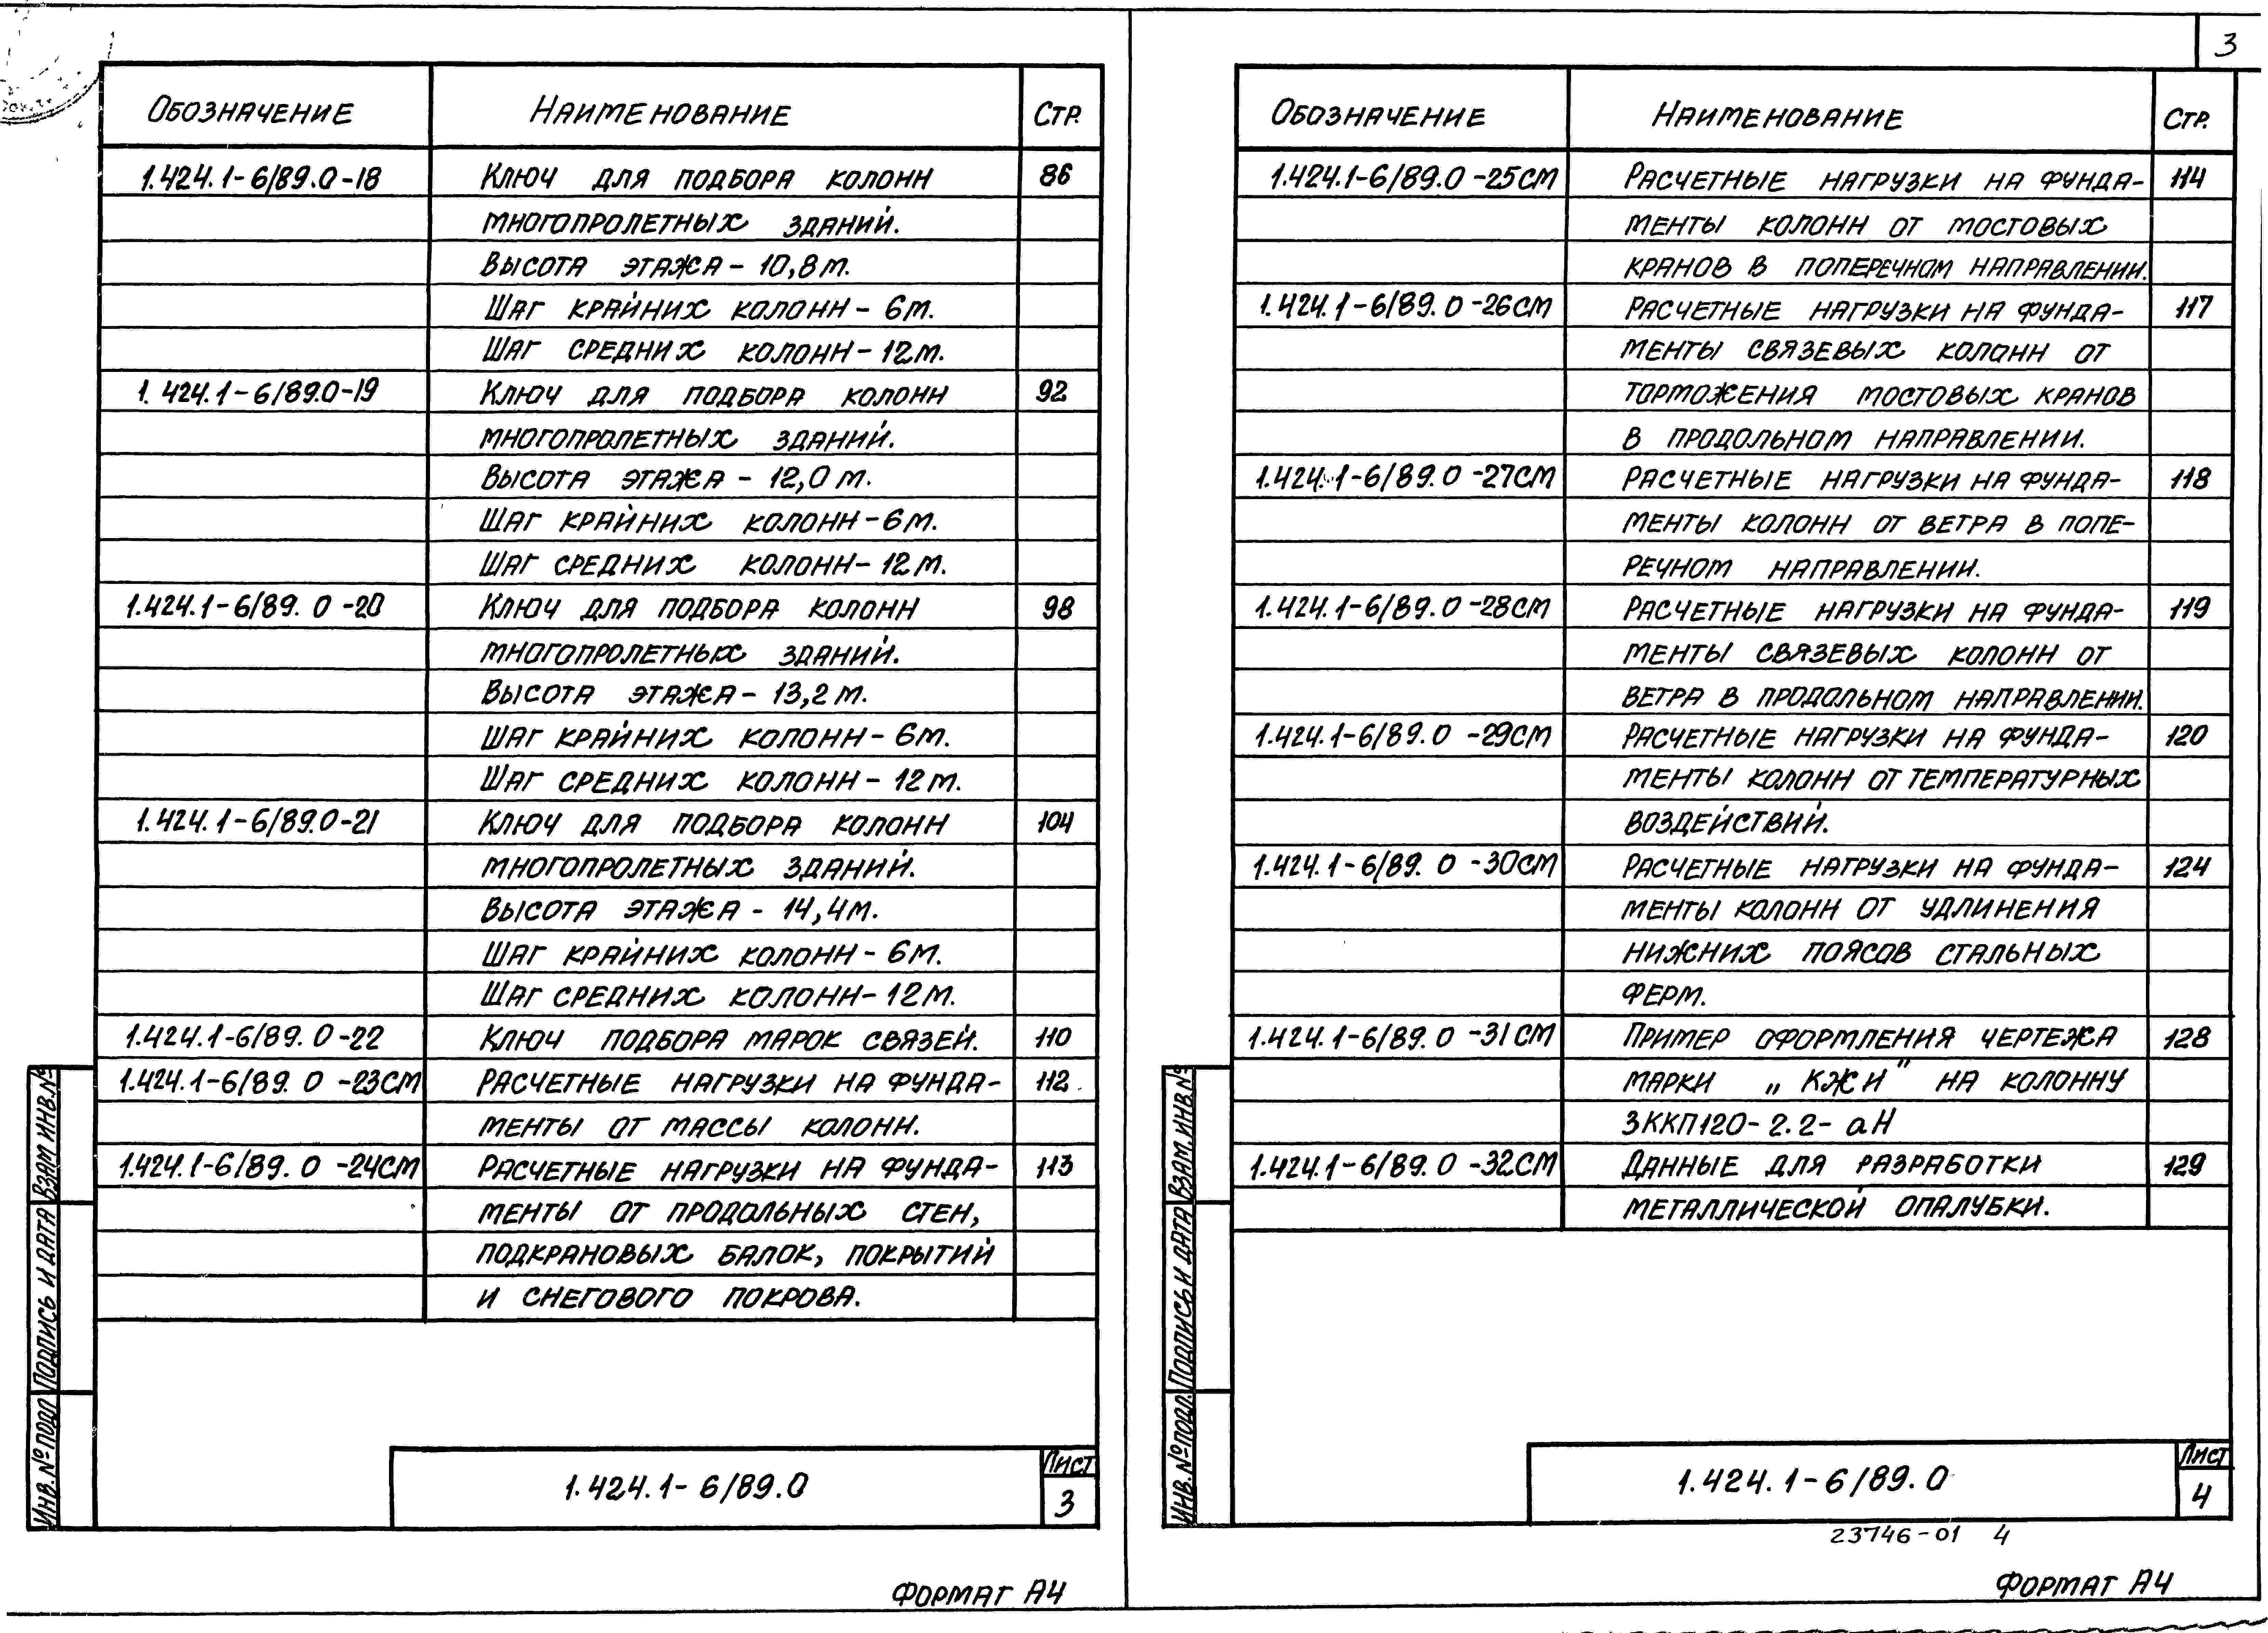 3
Обозначение Наименование Стр.
1.424.1-6/89.0-18 Ключ для подбора колонн 86
многопролетных зданий.
Высота этажа - 10,8 м.
Шаг крайних колонн - 6 м.
Шаг средних колонн - 12 м.
1.424.1-6/89.0-19 Ключ для подбора колонн 92
многопролетных зданий.
Высота этажа - 12,0 м.
Шаг крайних колонн - 6 м.
Шаг средних колонн - 12 м.
1.424.1-6/89.0-20 Ключ для подбора колонн 98
многопролетных зданий.
Высота этажа - 13,2 м.
Шаг крайних колонн - 6 м.
Шаг средних колонн - 12 м.
1.424.1-6/89.0-21 Ключ для подбора колонн 104
многопролетных зданий.
Высота этажа - 14,4 м.
Шаг крайних колонн - 6 м.
Шаг средних колонн - 12 м.
1.424.1-6/89.0-22 Ключ подбора марок связей. 110
1.424.1-6/89.0-23СМ Расчетные нагрузки на фунда- 112
менты от массы колонн.
1.424.1-6/89.0-24СМ Расчетные нагрузки на фунда- 113
менты от продольных стен,
подкрановых балок, покрытий
и снегового покрова.
Инв. № подл Подпись и дата Взам инв. №
1.424.1-6/89.0
Лист
3
Формат А4
Обозначение Наименование Стр.
1.424.1-6/89.0-25СМ Расчетные нагрузки на фунда- 114
менты колонн от мостовых
кранов в поперечном направлении.
1.424.1-6/89.0-26СМ Расчетные нагрузки на фунда- 117
менты связевых колонн от
торможения мостовых кранов
в продольном направлении.
1.424.1-6/89.0-27СМ Расчетные нагрузки на фунда- 118
менты колонн от ветра в попе-
речном направлении.
1.424.1-6/89.0-28СМ Расчетные нагрузки на фунда- 119
менты связевых колонн от
ветра в продольном направлении.
1.424.1-6/89.0-29СМ Расчетные нагрузки на фунда- 120
менты колонн от температурных
воздействий.
1.424.1-6/89.0-30СМ Расчетные нагрузки на фунда- 124
менты колонн от удлинения
нижних поясов стальных
ферм.
1.424.1-6/89.0-31СМ Пример оформления чертежа 128
марки „КЖИ" на колонну
3ККП120-2.2-аН
1.424.1-6/89.0-32СМ Данные для разработки 129
металлической опалубки.
Инв. № подл. Подпись и дата Взам. инв. №
1.424.1-6/89.0
Лист
4
23746-01 4
Формат А4